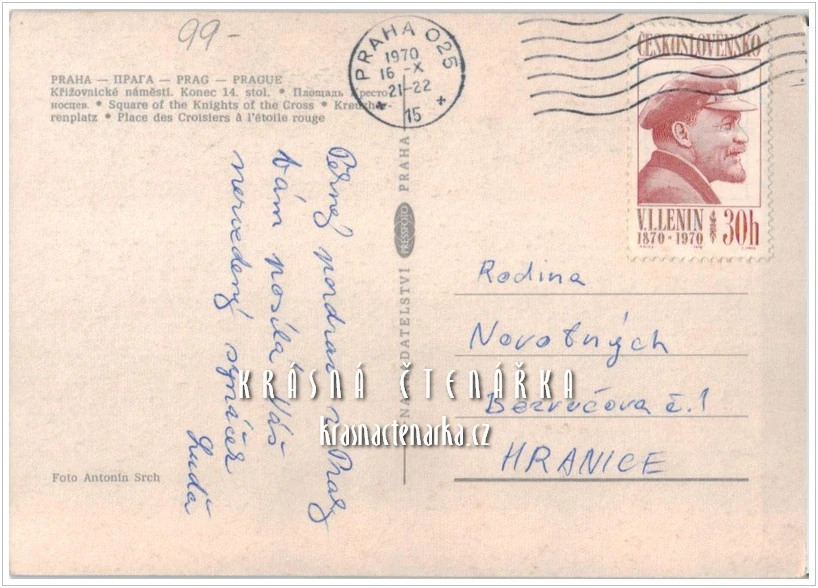 99-
PRAHA — ПРАГА — PRAG — PRAGUE
Křižovnické náměstí. Konec 14. stol. • Площадь Кресто-
носцев • Square of the Knights of the Cross • Kreuzher-
renplatz • Place des Croisiers à l'étoile rouge
PRAHA 025
1970
16 -X
21-22
15
ČESKOSLOVENSKO
V.I.LENIN
1870 · 1970
30h
Pěkný pozdrav z Prahy
Vám posílá Váš
nezvedený synáček
Luďa
NAKLADATELSTVÍ PRESSFOTO PRAHA
Rodina
Novotných
Bezručova č.1
HRANICE
KRÁSNÁ ČTENÁŘKA
krasnactenarka.cz
Foto Antonín Srch